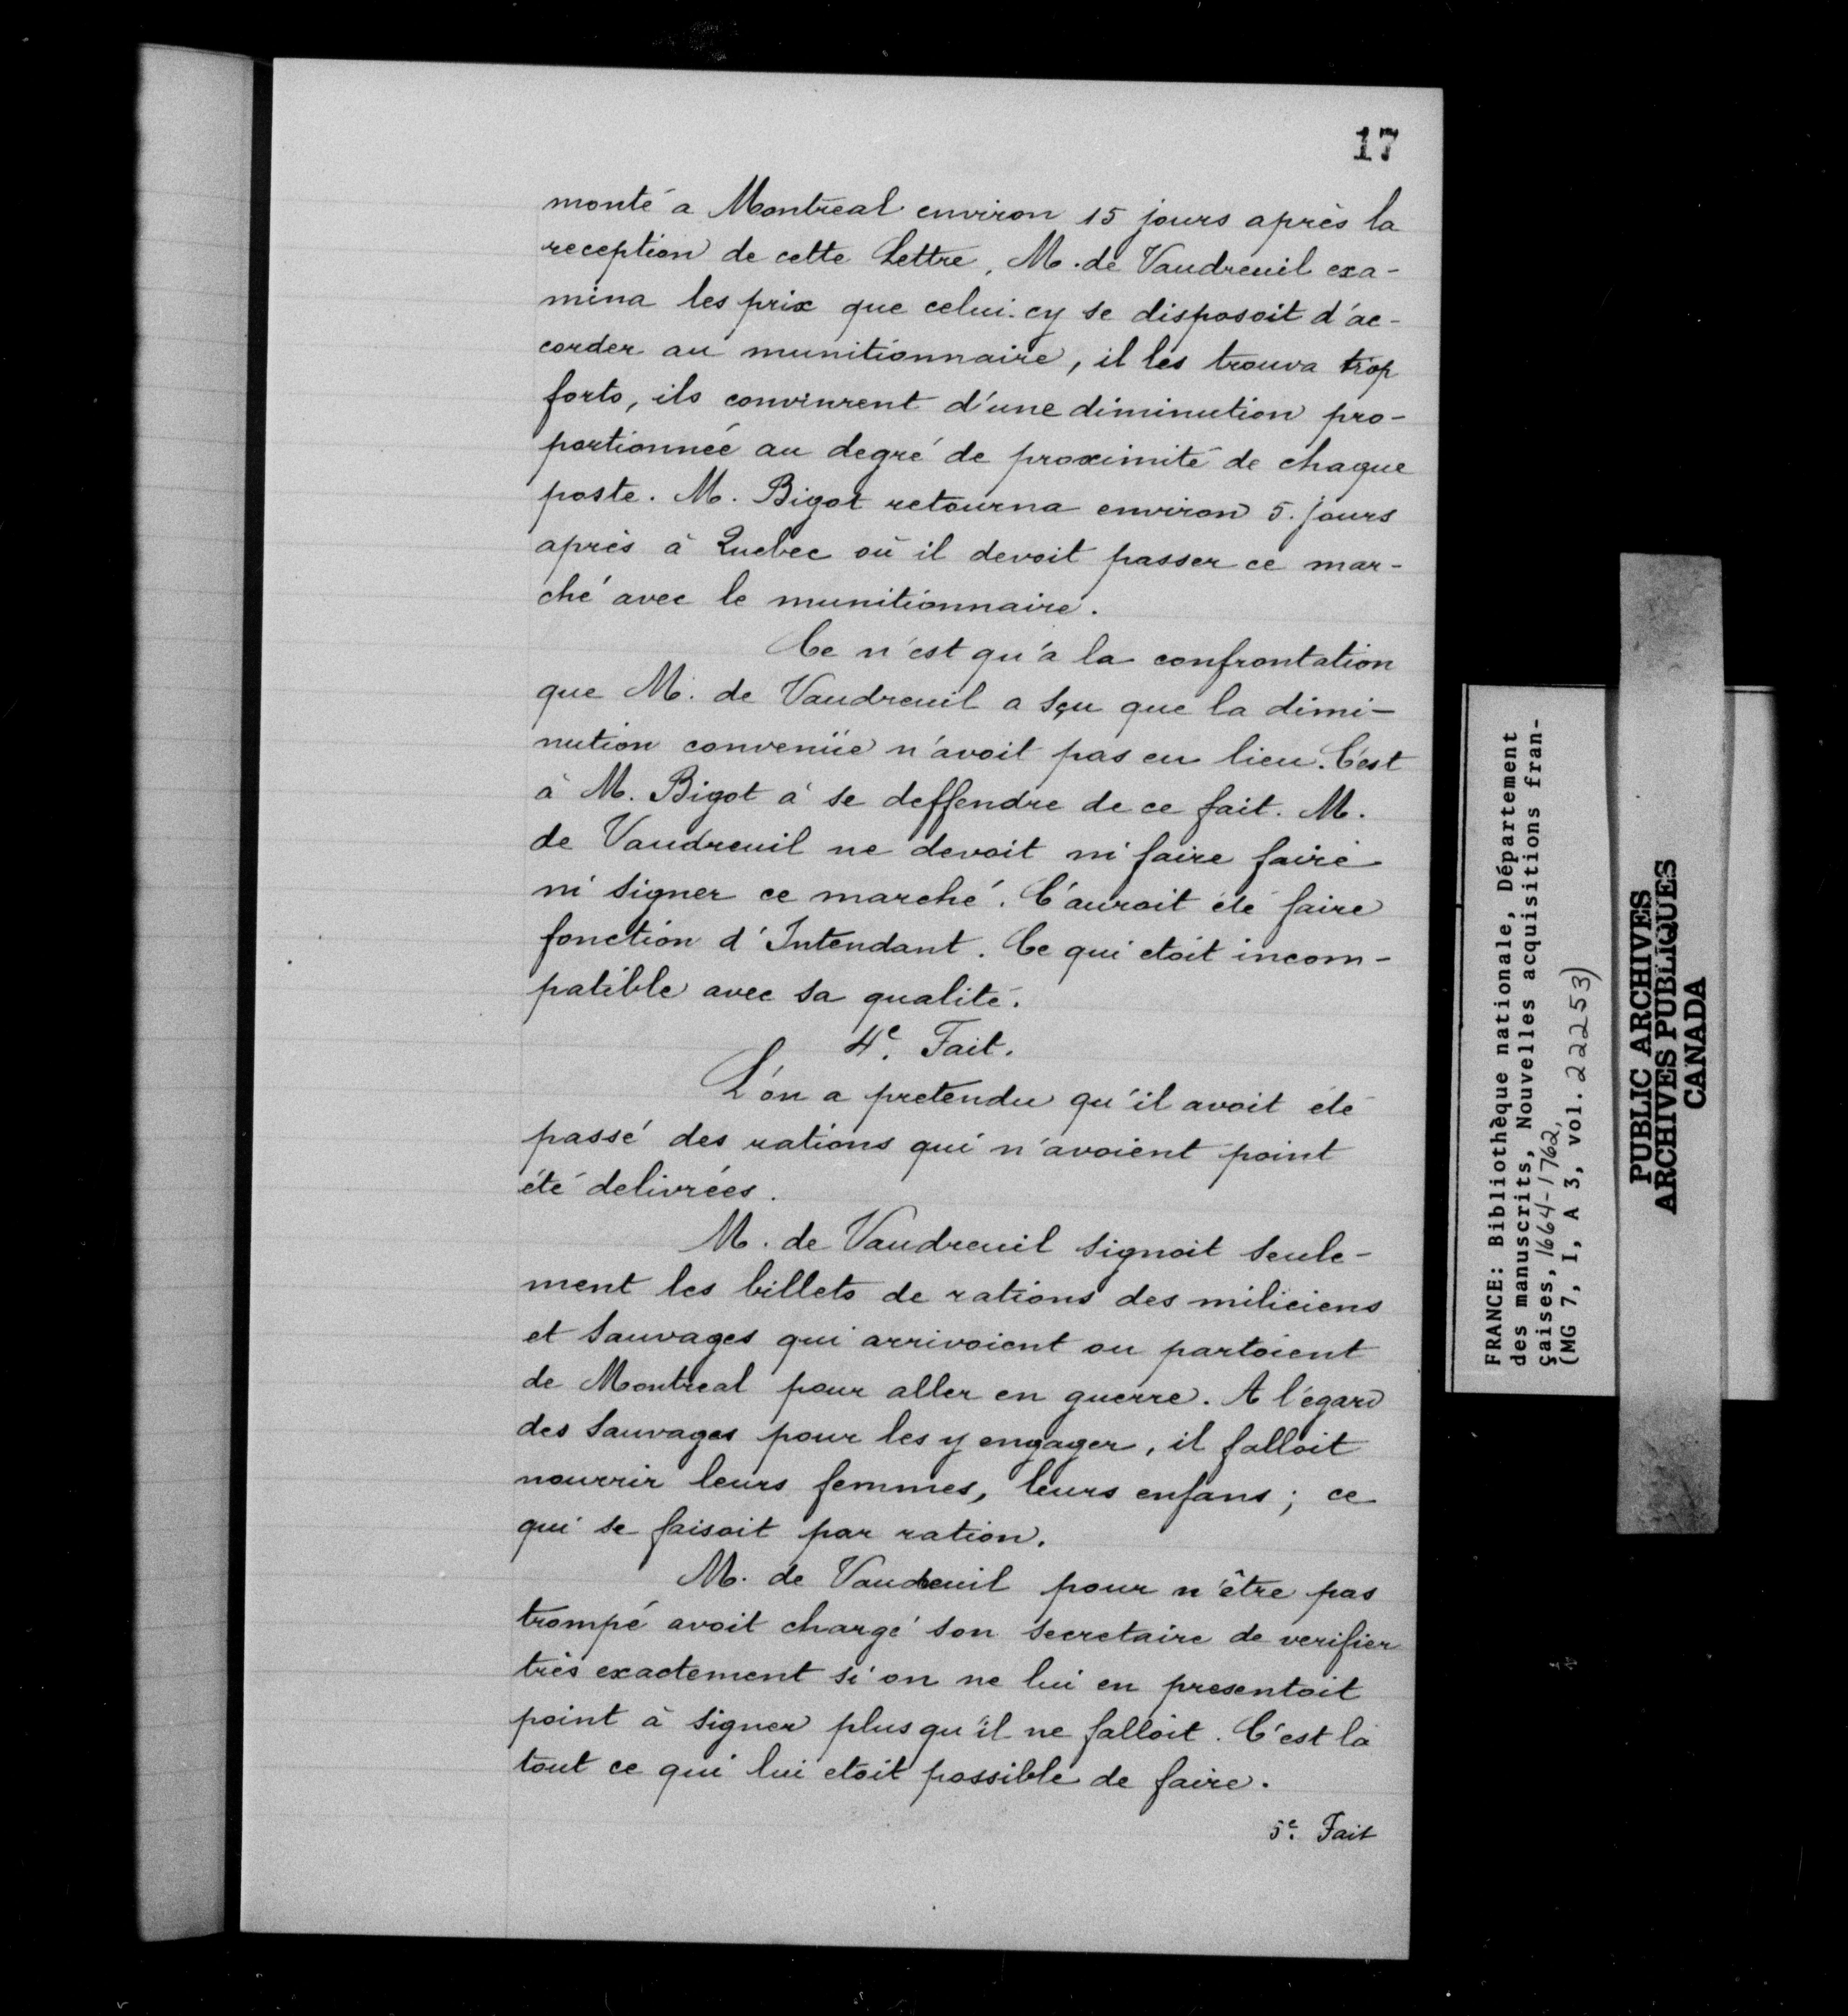 17
monté a Montreal environ 15 jours après la
reception de cette Lettre, M. de Vaudreuil exa-
mina les prix que celui-cy se disposoit d'ac-
corder au munitionnaire, il les trouva trop
forts, ils convinrent d'une diminution pro-
portionnée au degré de proximité de chaque
poste. M. Bigot retourna environ 5. jours
après à Quebec où il devoit passer ce mar-
ché avec le munitionnaire.
Ce n'est qu'a la confrontation
que M. de Vaudreuil a sçu que la dimi-
nution convenüe n'avoit pas eu lieu. C'est
à M. Bigot à se deffendre de ce fait. M.
de Vaudreuil ne devoit ni faire faire
ni signer ce marché. C'auroit été faire
fonction d'Intendant. Ce qui etoit incom-
patible avec sa qualité.
4e. Fait.
L'on a pretendu qu'il avoit été
passé des rations qui n'avoient point
été delivrées.
M. de Vaudreuil signoit seule-
ment les billets de rations des miliciens
et Sauvages qui arrivoient ou partoient
de Montreal pour aller en guerre. A l'égard
des Sauvages pour les y engager, il falloit
nourrir leurs femmes, leurs enfans; ce
qui se faisoit par ration.
M. de Vaudreuil pour n'être pas
trompé avoit chargé son secretaire de verifier
très exactement si on ne lui en presentoit
point à signer plus qu'il ne falloit. C'est là
tout ce qui lui etoit possible de faire.
5e. Fait
FRANCE: Bibliothèque nationale, Département
des manuscrits, Nouvelles acquisitions fran-
çaises, 1664-1762,
(MG 7, I, A 3, vol. 22253)
PUBLIC ARCHIVES
ARCHIVES PUBLIQUES
CANADA